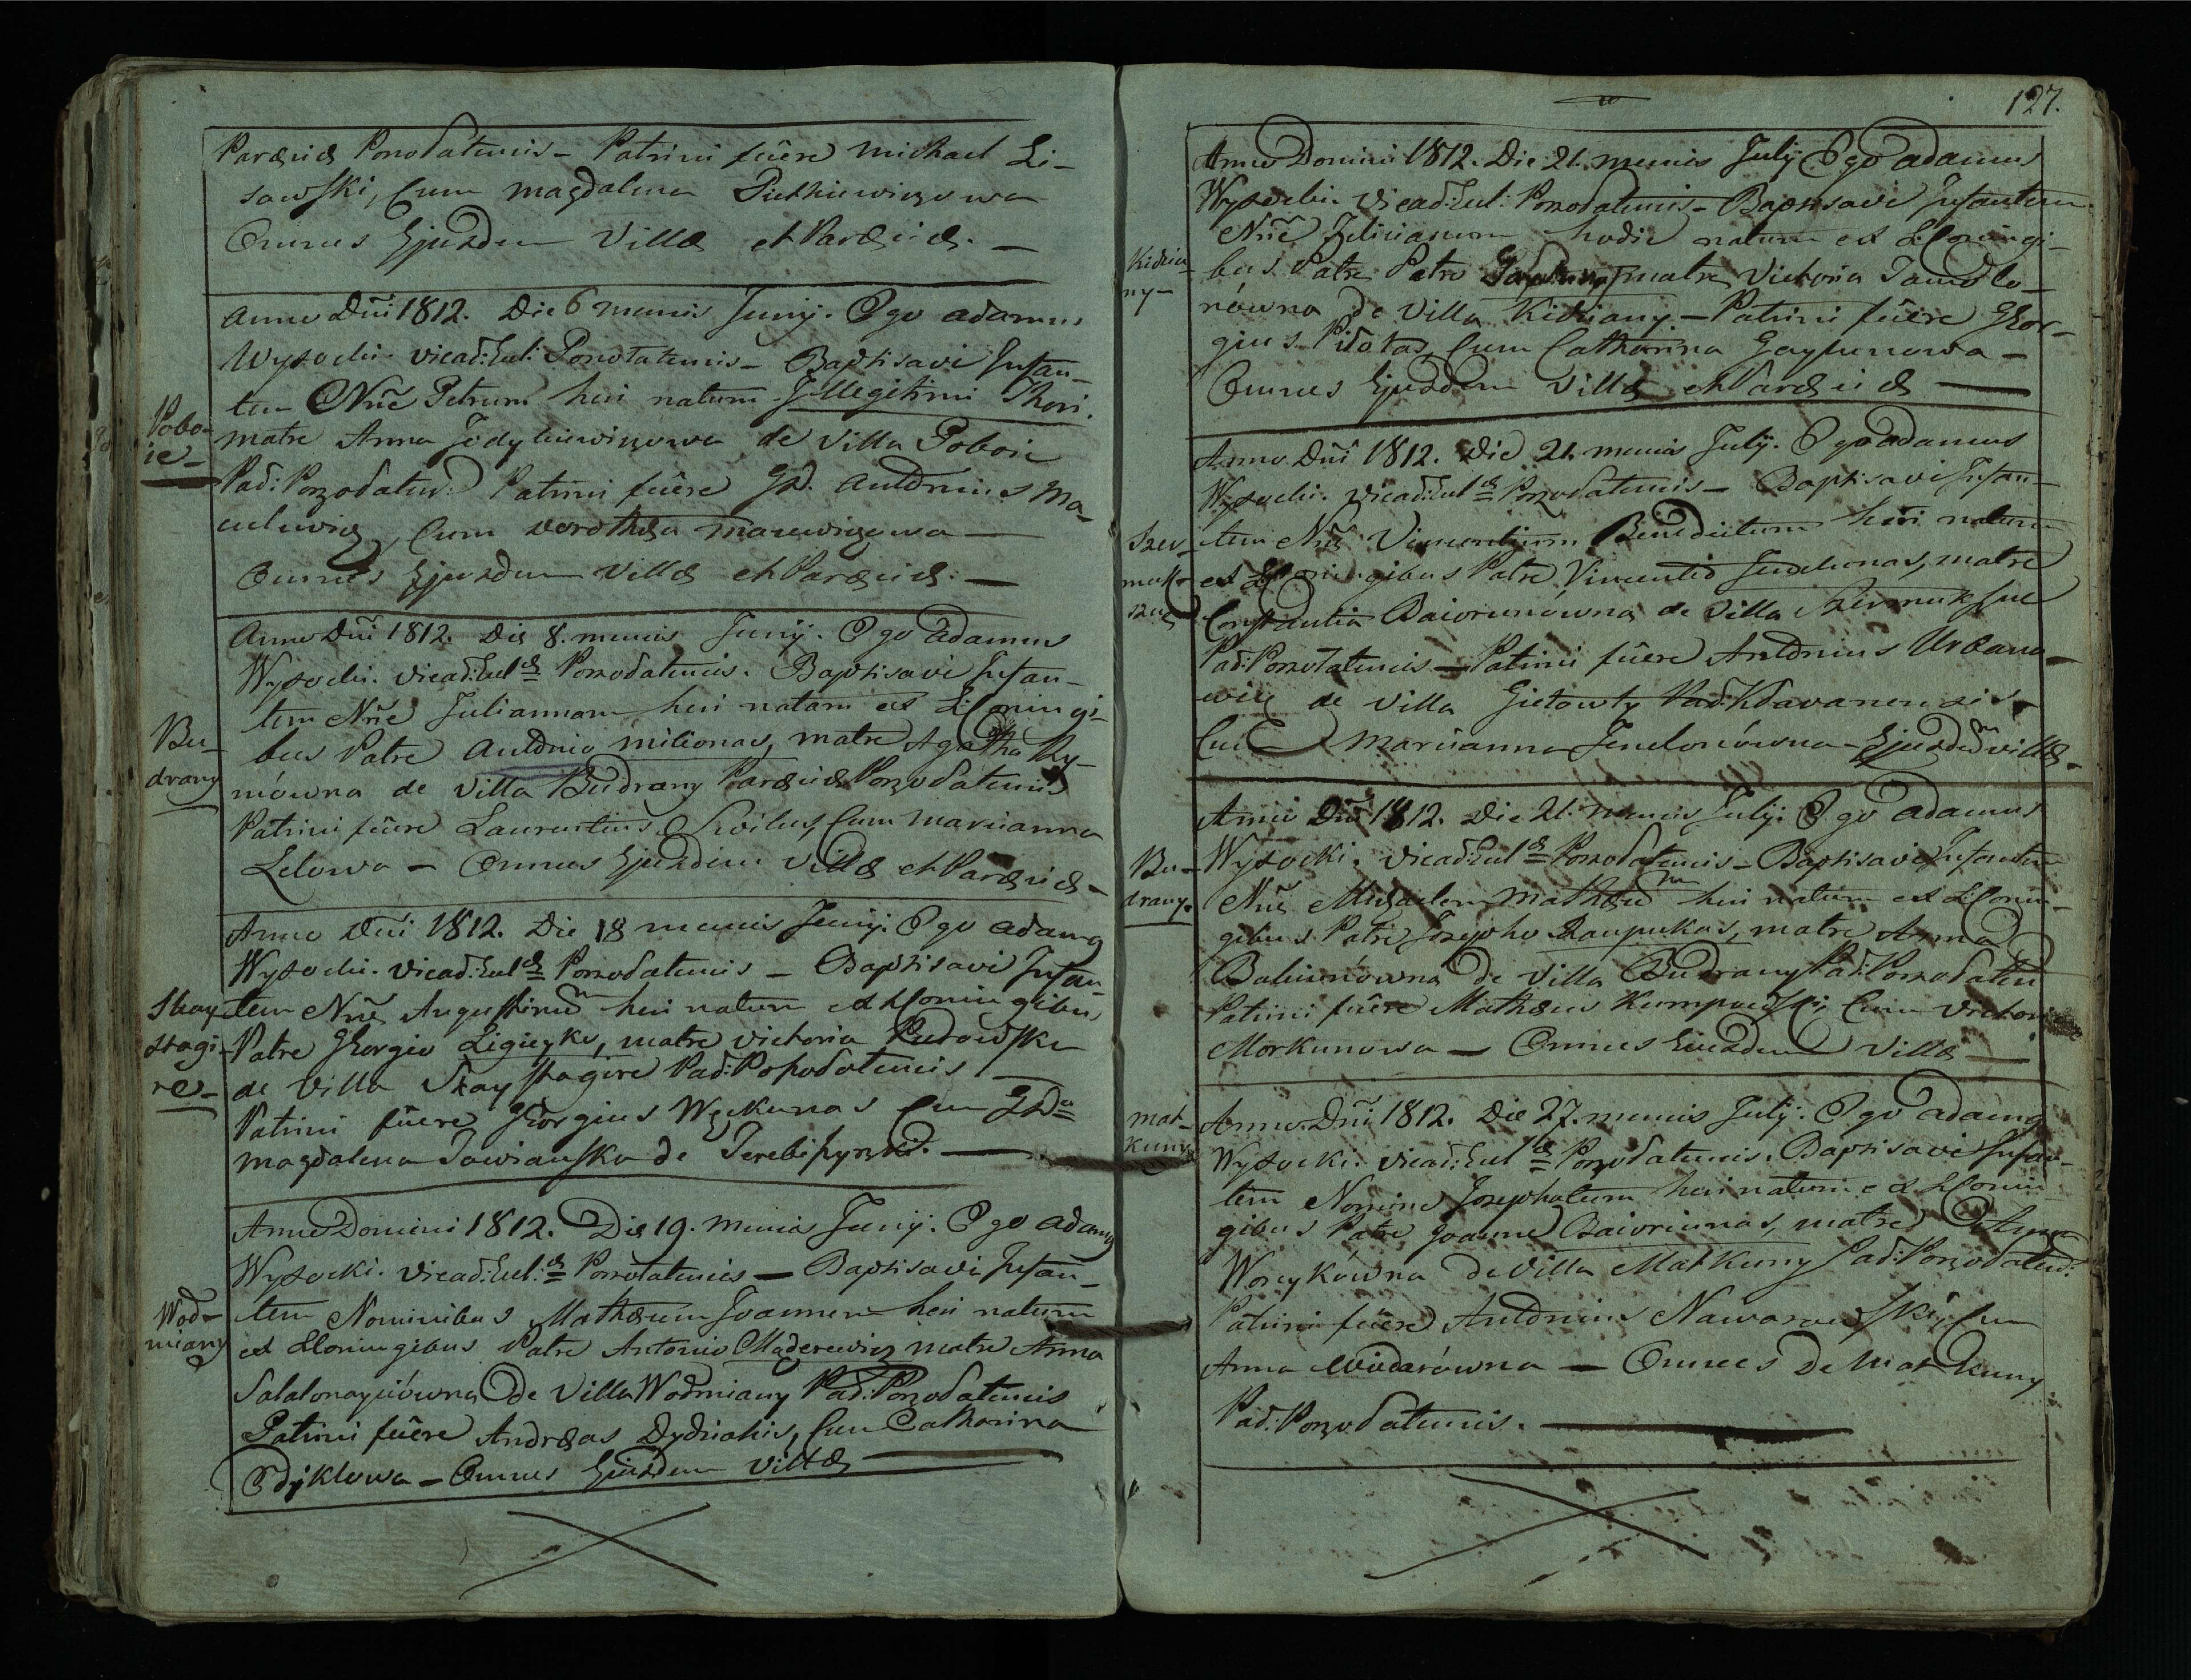 Paræciæ Ponodatensis – Patrini fuêre Michael Li-
sowski, Cum Magdalena
Omnes Ejusdem Villæ et Paræciæ. –
Pobo-
ie –
Anno Dñi 1812. Die 6 mensis Junij. Ego Adamus
Wysocki. Vicad: Eul: Ponodatensis – Baptisavi Infan-
tem Nñe Petrum heri natum Illegitimi Thori.
matre Anna Jodykiewiczowa de Villa Poboie
Pad: Ponodaten: Patrini fuêre GD. Antonius Ma-
culewicz, Cum Dorothea Marewiczowa –
Omnes Ejusdem Villæ et Paræciæ. –
Bu-
drany
Anno Dñi 1812. Die 8. mensis Junij. Ego Adamus
Wysocki. Vicad: Eulæ Ponodatensis. Baptisavi Infan-
tem Nñe Juliannam heri natam ex LConiugi-
bus Patre Antonio Milionas, matre Agatha Ry-
mówna de Villa Budrany Paræciæ Ponodatensis
Patrini fuêre Laurentius Swilus, Cum Marianna
Lelowa – Omnes Ejusdem Villæ et Paræciæ –
Skay-
stagi-
re –
Anno Dñi 1812. Die 18 mensis Junij. Ego Adamus
Wysocki. Vicad: Eulæ Ponodatensis – Baptisavi Infan-
tem Nñe Augustinum heri natum ex LConiugibus
Patre Georgio Ligieyko, matre Victoria Rudowska
de Villa Skaystagire Pad: Ponodatensis –
Patrini fuêre Georgius Węckunas Cum GDa
Magdalena Sawianska de –
Wod-
miany
Anno Domini 1812. Die 19. mensis Junij. Ego Adamus
Wysocki. Vicad: Eul:æ Ponodatensis – Baptisavi Infan-
tem Nominibus Mathæum Joannem heri natum
ex LConiugibus Patre Antonio Maderewicz matre Anna
de Villa Wodmiany Pad: Ponodatensis
Patrini fuêre Andræas Dydziakis, Cum Catharina
Omnes Ejusdem Villæ
127.
Kidzia-
ny –
Anno Domini 1812. Die 21. mensis Julij Ego Adamus
Wysocki. Vicad: Eul: Ponodatensis – Baptisavi Infantem
Nñe Felicianum hodie natum ex LConiugi-
bus Patre Petro matre Victoria
równa de Villa Kidziany. – Patrini fuêre Geor-
gius Pidotas, Cum Catharina Gaylunowa –
Omnes Ejusdem Villæ et Paræciæ –
Szer-
muk-
szne
Anno Dñi 1812. Die 21. mensis Julij. Ego Adamus
Wysocki. Vicad: Eulæ Ponodatensis – Baptisavi Infan-
tem Nñe Vincentium Benedictum heri natum
ex LConiugibus Patre Vincentio Jendunas, matre
Constantia Baiorunówna de Villa Szermuksne
Pad: Ponodatensis – Patrini fuêre Antonius Urbano-
wicz de Villa Gietowty Pad: Kławanensis
Cum Marianna Jendonówna – Ejusdem Villæ.
Bu-
drany.
Anno Dñi 1812. Die 21. mensis Julij. Ego Adamus
Wysocki. Vicad: Eulæ Ponodatensis – Baptisavi Infantem
Nñe Michaelem Mathæum heri natum ex LConiu-
gibus Patre Josepho Raupukas, matre Anna
Babianówna de Villa Budrany Pad: Ponodaten
Patrini fuêre Mathæus Kumpowski, Cum Victoria
Morkunowa – Omnes Eiusdem Villæ –
Mat-
kuny
Anno Dñi 1812. Die 27. mensis Julij. Ego Adamus
Wysocki. Vicad: Eulæ Ponodatensis. Baptisavi Infan-
tem Nomine Josephatum heri natum ex LConiu-
gibus Patre Joanne Baiorunas, matre Anna
Woycykówna de Villa Matkuny Pad: Ponodaten:
Patrini fuêre Antonius Nawarowski, Cum
Anna Widarówna – Omnes de Matkuny
Pad: Ponodatensis. –